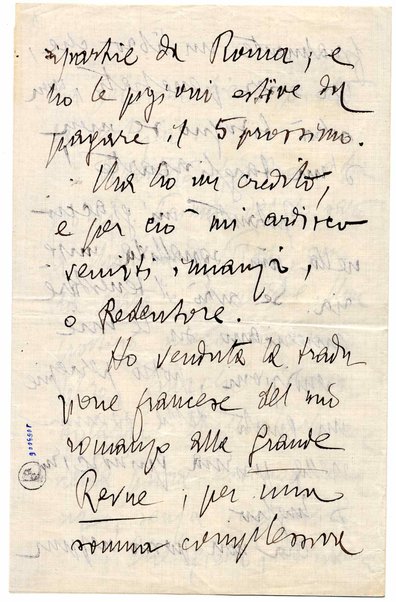 ripartire da Roma, e
ho le pigioni estive da
pagare il 5 prossimo.
Ma ho un credito,
e per ciò mi ardisco
venirti innanzi,
o Redentore.
Ho venduta la tradu
zione francese del mio
romanzo alla grande
Revue, per una
somma complessiva